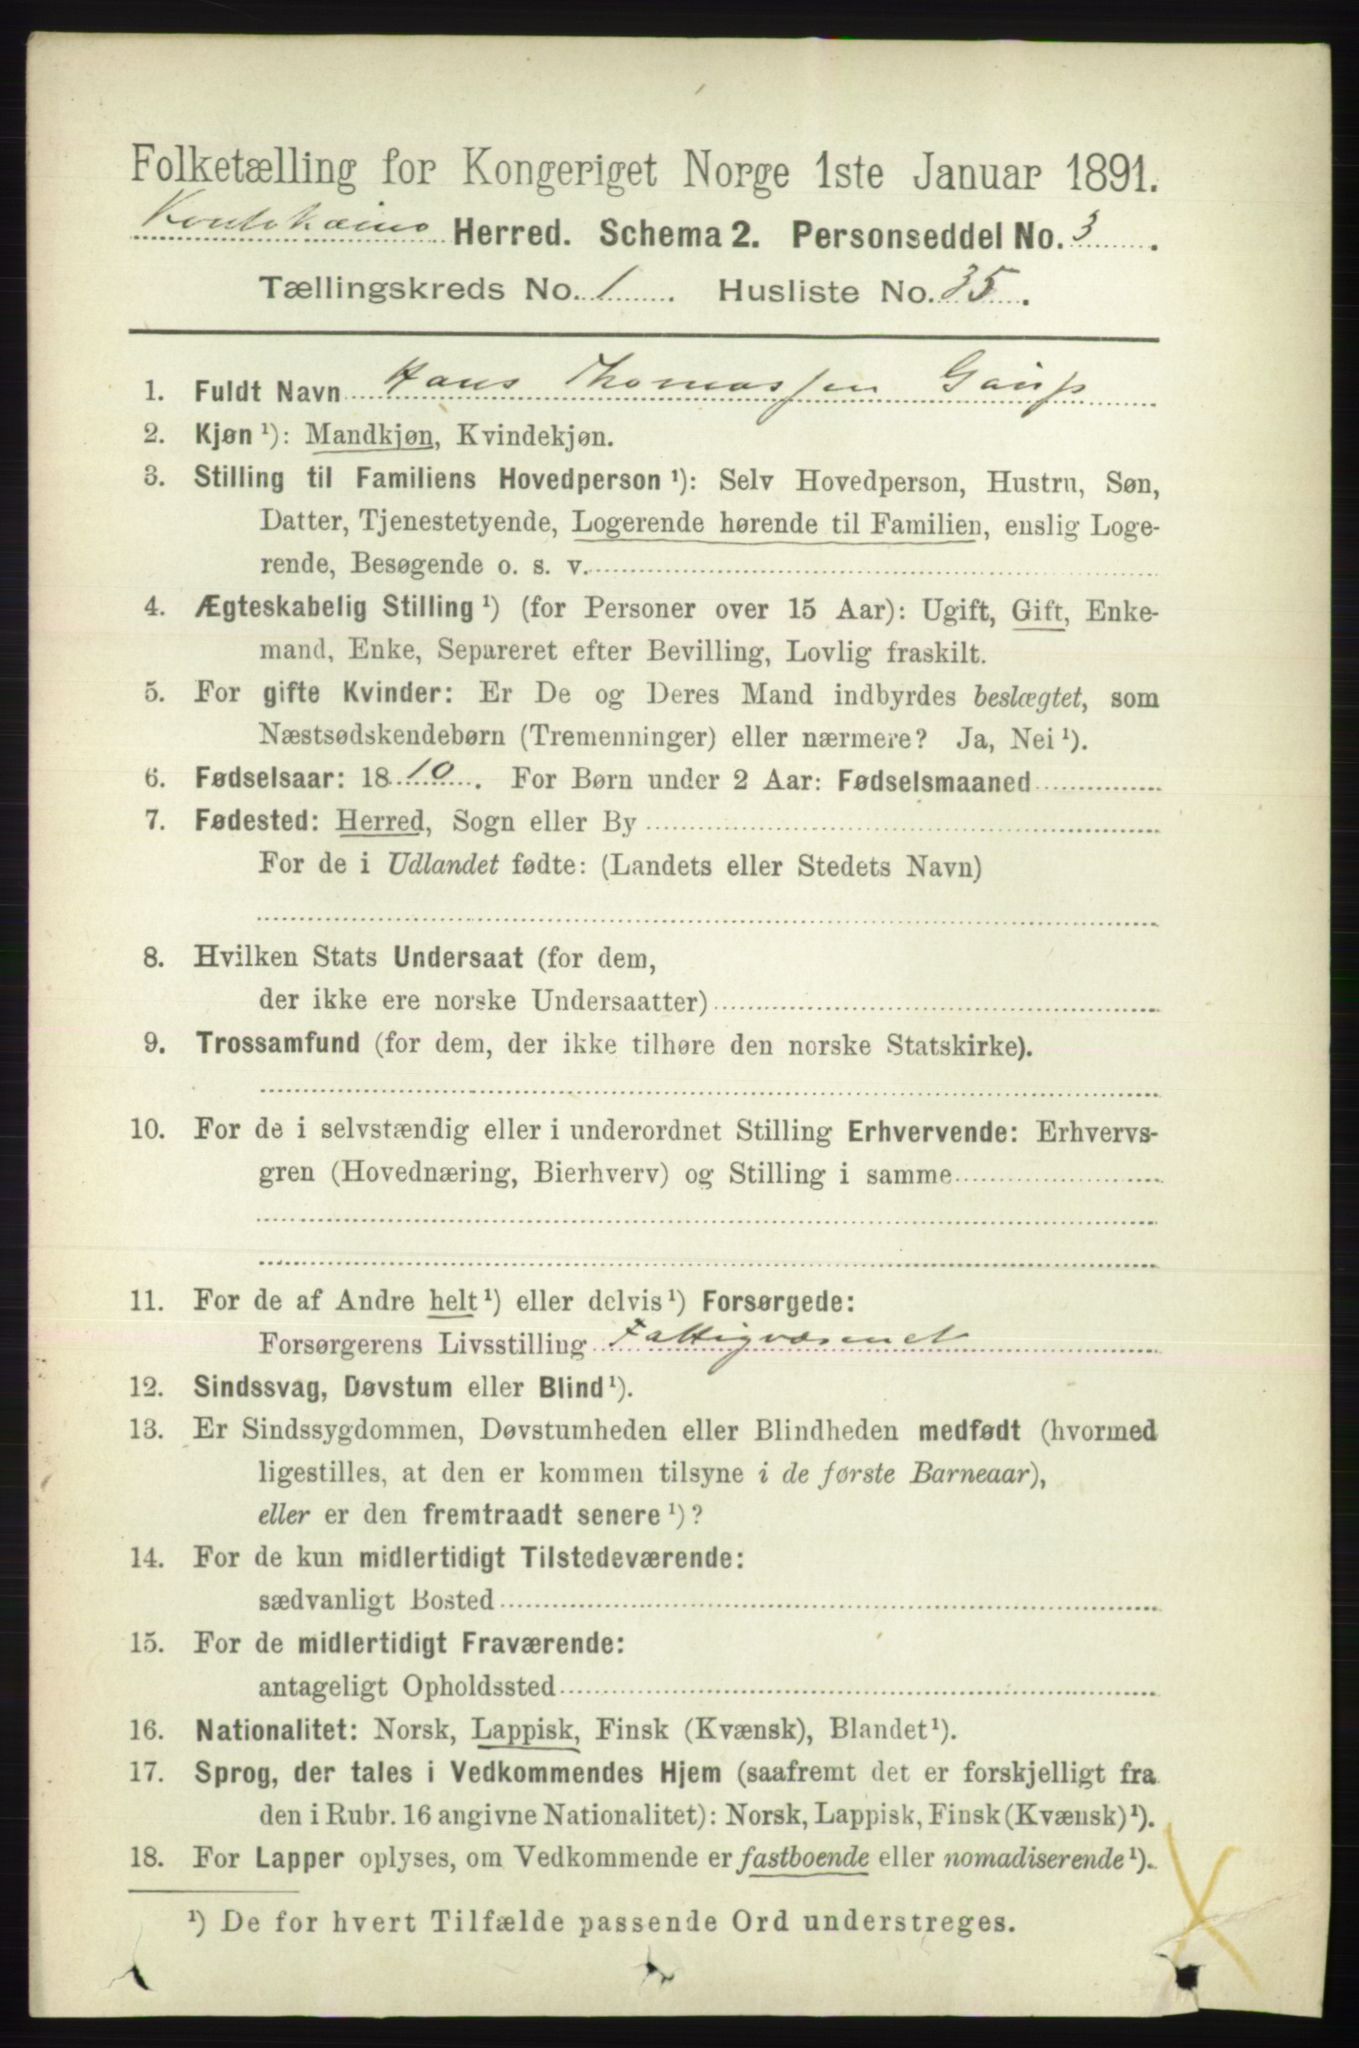 Folketælling for Kongeriget Norge 1ste Januar 1891.
Koutokeino Herred. Schema 2. Personseddel No. 3.
Tællingskreds No. 1. Husliste No. 35.
1. Fuldt Navn Hans Thomassen Gaup
2. Kjøn ¹): Mandkjøn, Kvindekjøn.
3. Stilling til Familiens Hovedperson ¹): Selv Hovedperson, Hustru, Søn,
Datter, Tjenestetyende, Logerende hørende til Familien, enslig Loge-
rende, Besøgende o. s. v.
4. Ægteskabelig Stilling ¹) (for Personer over 15 Aar): Ugift, Gift, Enke-
mand, Enke, Separeret efter Bevilling, Lovlig fraskilt.
5. For gifte Kvinder: Er De og Deres Mand indbyrdes beslægtet, som
Næstsødskendebørn (Tremenninger) eller nærmere? Ja, Nei ¹).
6. Fødselsaar: 1810. For Børn under 2 Aar: Fødselsmaaned
7. Fødested: Herred, Sogn eller By
For de i Udlandet fødte: (Landets eller Stedets Navn)
8. Hvilken Stats Undersaat (for dem,
der ikke ere norske Undersaatter)
9. Trossamfund (for dem, der ikke tilhøre den norske Statskirke).
10. For de i selvstændig eller i underordnet Stilling Erhvervende: Erhvervs-
gren (Hovednæring, Bierhverv) og Stilling i samme
11. For de af Andre helt ¹) eller delvis ¹) Forsørgede:
Forsørgerens Livsstilling Fattigvæsenet
12. Sindssvag, Døvstum eller Blind ¹).
13. Er Sindssygdommen, Døvstumheden eller Blindheden medfødt (hvormed
ligestilles, at den er kommen tilsyne i de første Barneaar),
eller er den fremtraadt senere ¹)?
14. For de kun midlertidigt Tilstedeværende:
sædvanligt Bosted
15. For de midlertidigt Fraværende:
antageligt Opholdssted
16. Nationalitet: Norsk, Lappisk, Finsk (Kvænsk), Blandet ¹).
17. Sprog, der tales i Vedkommendes Hjem (saafremt det er forskjelligt fra
den i Rubr. 16 angivne Nationalitet): Norsk, Lappisk, Finsk (Kvænsk) ¹).
18. For Lapper oplyses, om Vedkommende er fastboende eller nomadiserende ¹).
¹) De for hvert Tilfælde passende Ord understreges.